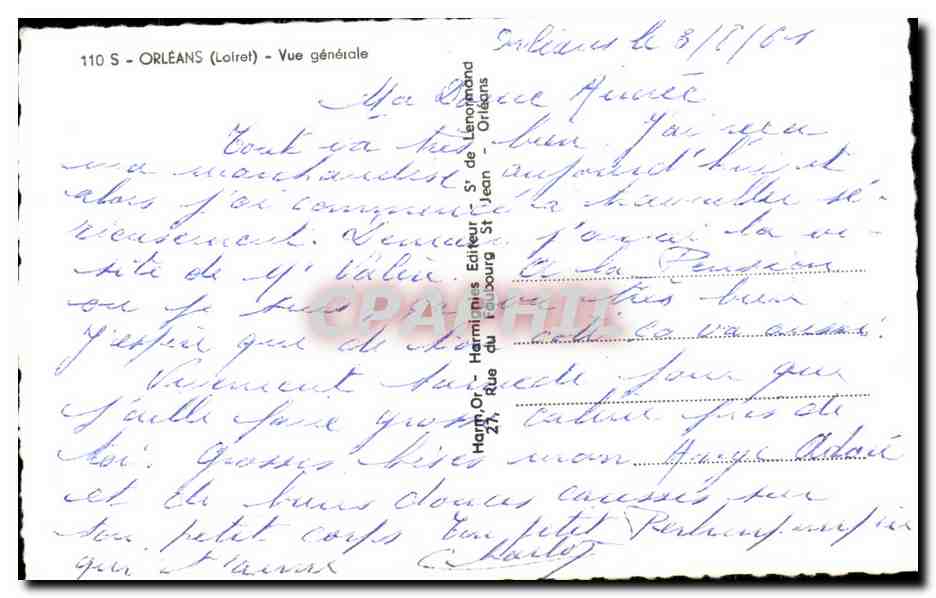 110 S - ORLÉANS (Loiret) - Vue générale
Orléans le 3/8/61
Ma Douce Aimée
Tout va très bien. J'ai reçu
ma marchandise aujourd'hui et
alors j'ai commencé à travailler sé-
rieusement. Demain j'aurai la vi-
site de Mr Valéry. A la Pension
ou je suis, ça va très bien
J'espère que de ton côté ça va aussi.
Vivement samedi pour que
j'aille faire gross câlin près de
toi. Grosses bises mon Ange Adoré
et de bien douces caresses sur
ton petit corps Ton petit Perlimpinpin
qui t'aime Charlot
Harm,Or - Harmignies Editeur - Sr de Lenormand
27, Rue du Faubourg St Jean - Orléans
CPAPHIL